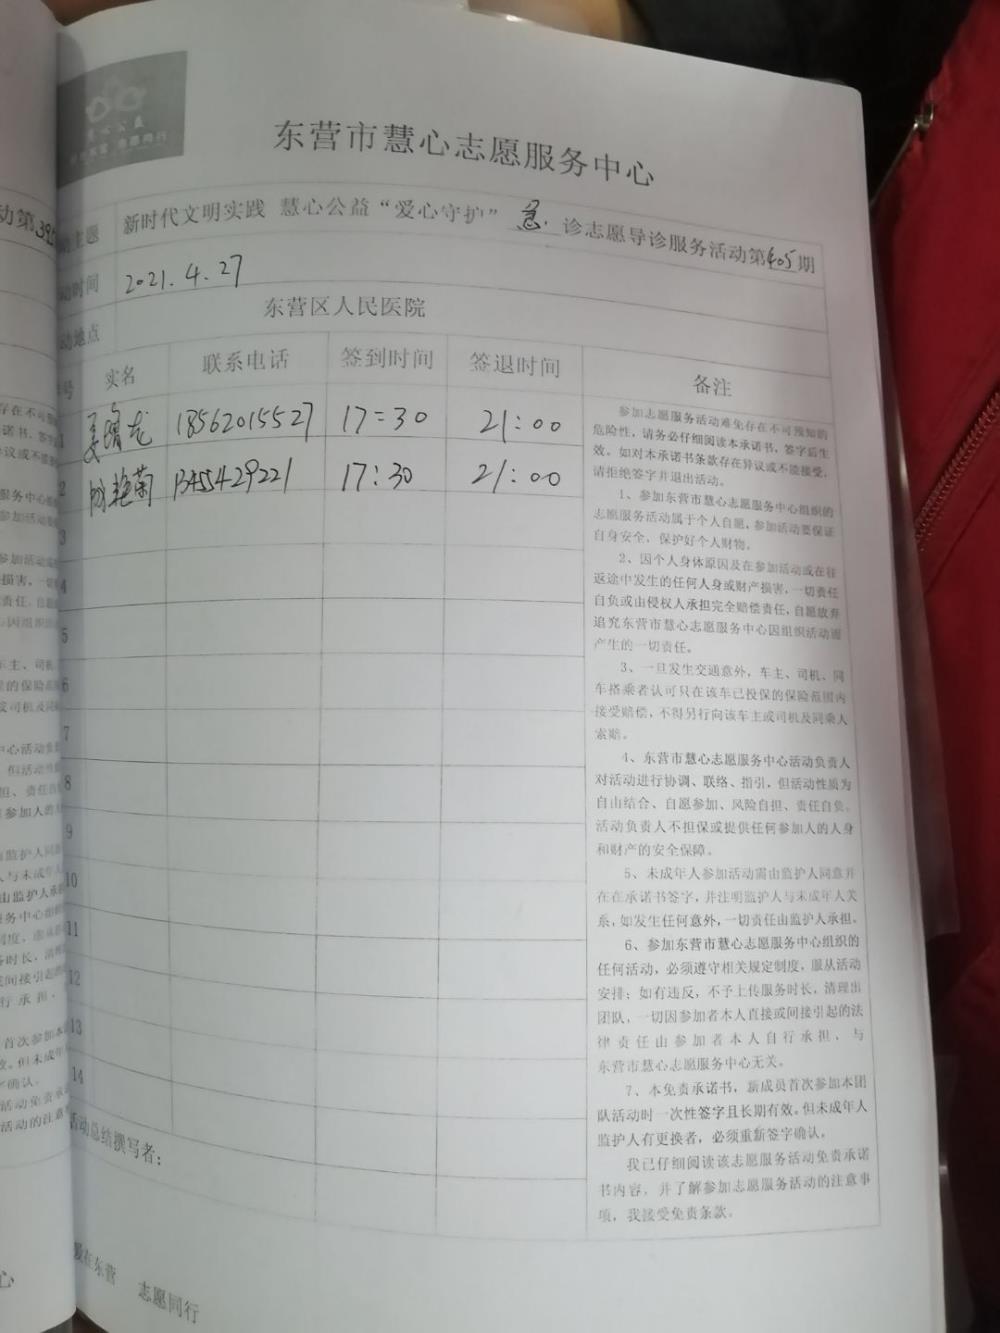 东营市慧心志愿服务中心
主题 新时代文明实践 慧心公益“爱心守护” 急 诊志愿导诊服务活动第405期
动时间 2021.4.27
动地点 东营区人民医院
号 实名 联系电话 签到时间 签退时间 备注
1 18562015527 17:30 21:00
2 艳菊 13455429221 17:30 21:00
3
4
5
6
7
8
9
10
11
12
13
14
参加志愿服务活动难免存在不可预知的
危险性，请务必仔细阅读本承诺书，签字后生
效。如对本承诺书条款存在异议或不能接受，
请拒绝签字并退出活动。
1、参加东营市慧心志愿服务中心组织的
志愿服务活动属于个人自愿，参加活动要保证
自身安全，保护好个人财物。
2、因个人身体原因及在参加活动或在往
返途中发生的任何人身或财产损害，一切责任
自负或由侵权人承担完全赔偿责任，自愿放弃
追究东营市慧心志愿服务中心因组织活动而
产生的一切责任。
3、一旦发生交通意外，车主、司机、同
车搭乘者认可只在该车已投保的保险范围内
接受赔偿，不得另行向该车主或司机及同乘人
索赔。
4、东营市慧心志愿服务中心活动负责人
对活动进行协调、联络、指引，但活动性质为
自由结合、自愿参加、风险自担、责任自负。
活动负责人不担保或提供任何参加人的人身
和财产的安全保障。
5、未成年人参加活动需由监护人同意并
在在承诺书签字，并注明监护人与未成年人关
系，如发生任何意外，一切责任由监护人承担。
6、参加东营市慧心志愿服务中心组织的
任何活动，必须遵守相关规定制度，服从活动
安排；如有违反，不予上传服务时长，清理出
团队，一切因参加者本人直接或间接引起的法
律责任由参加者本人自行承担、与
东营市慧心志愿服务中心无关。
7、本免责承诺书，新成员首次参加本团
队活动时一次性签字且长期有效。但未成年人
监护人有更换者，必须重新签字确认。
我已仔细阅读该志愿服务活动免责承诺
书内容，并了解参加志愿服务活动的注意事
项，我接受免责条款。
活动总结撰写者：
爱在东营 志愿同行